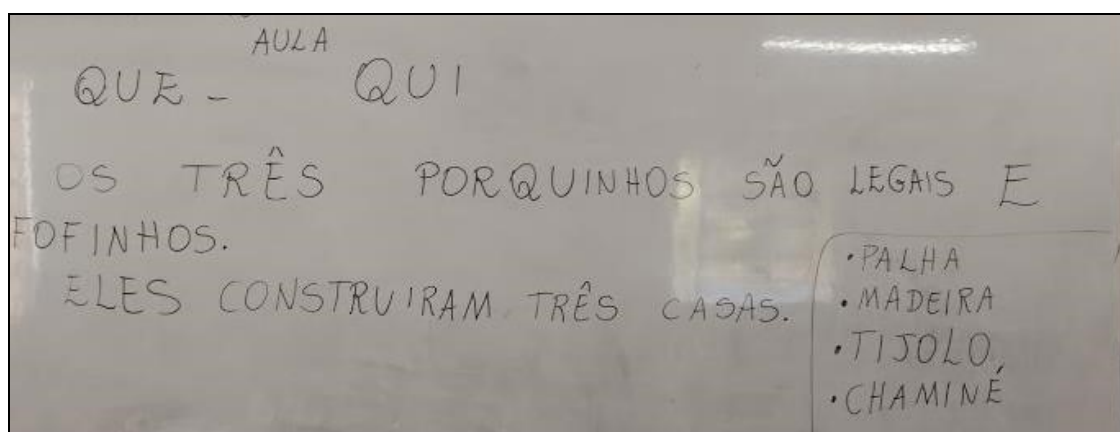 AULA
QUE - QUI
OS TRÊS PORQUINHOS SÃO LEGAIS E
FOFINHOS.
ELES CONSTRUIRAM TRÊS CASAS.
• PALHA
• MADEIRA
• TIJOLO
• CHAMINÉ